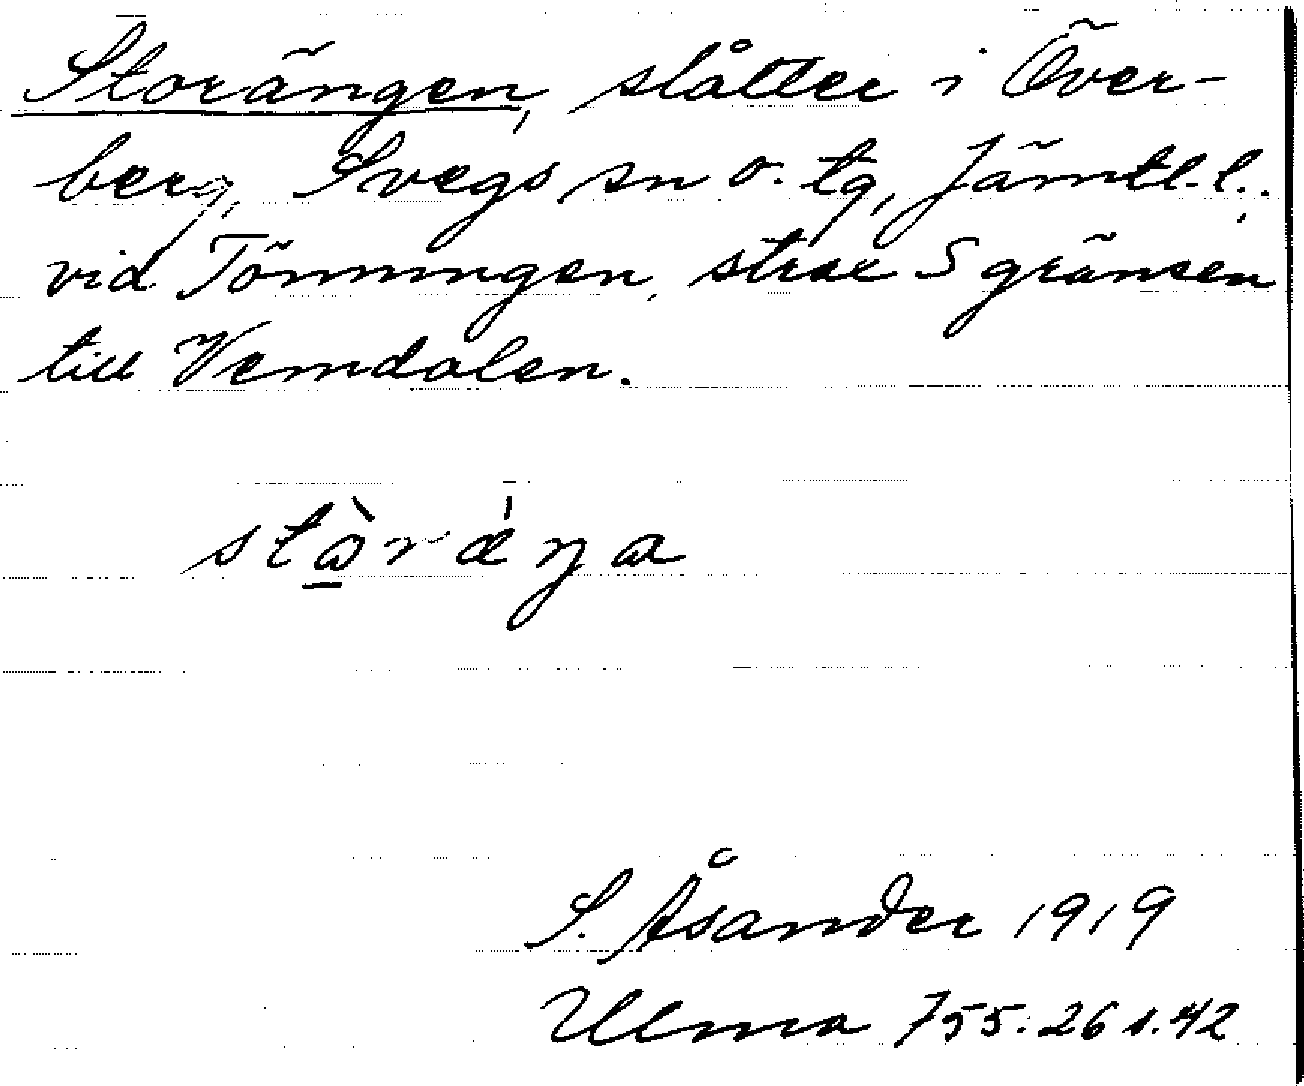 Storängen, slåtter i Över-
berg, Svegs sn o. tg, Jämtl. l.,
vid Tönningen, strax S gränsen
till Vemdalen.
S. Åsander 1919
Ulma 755. 26 s. 42